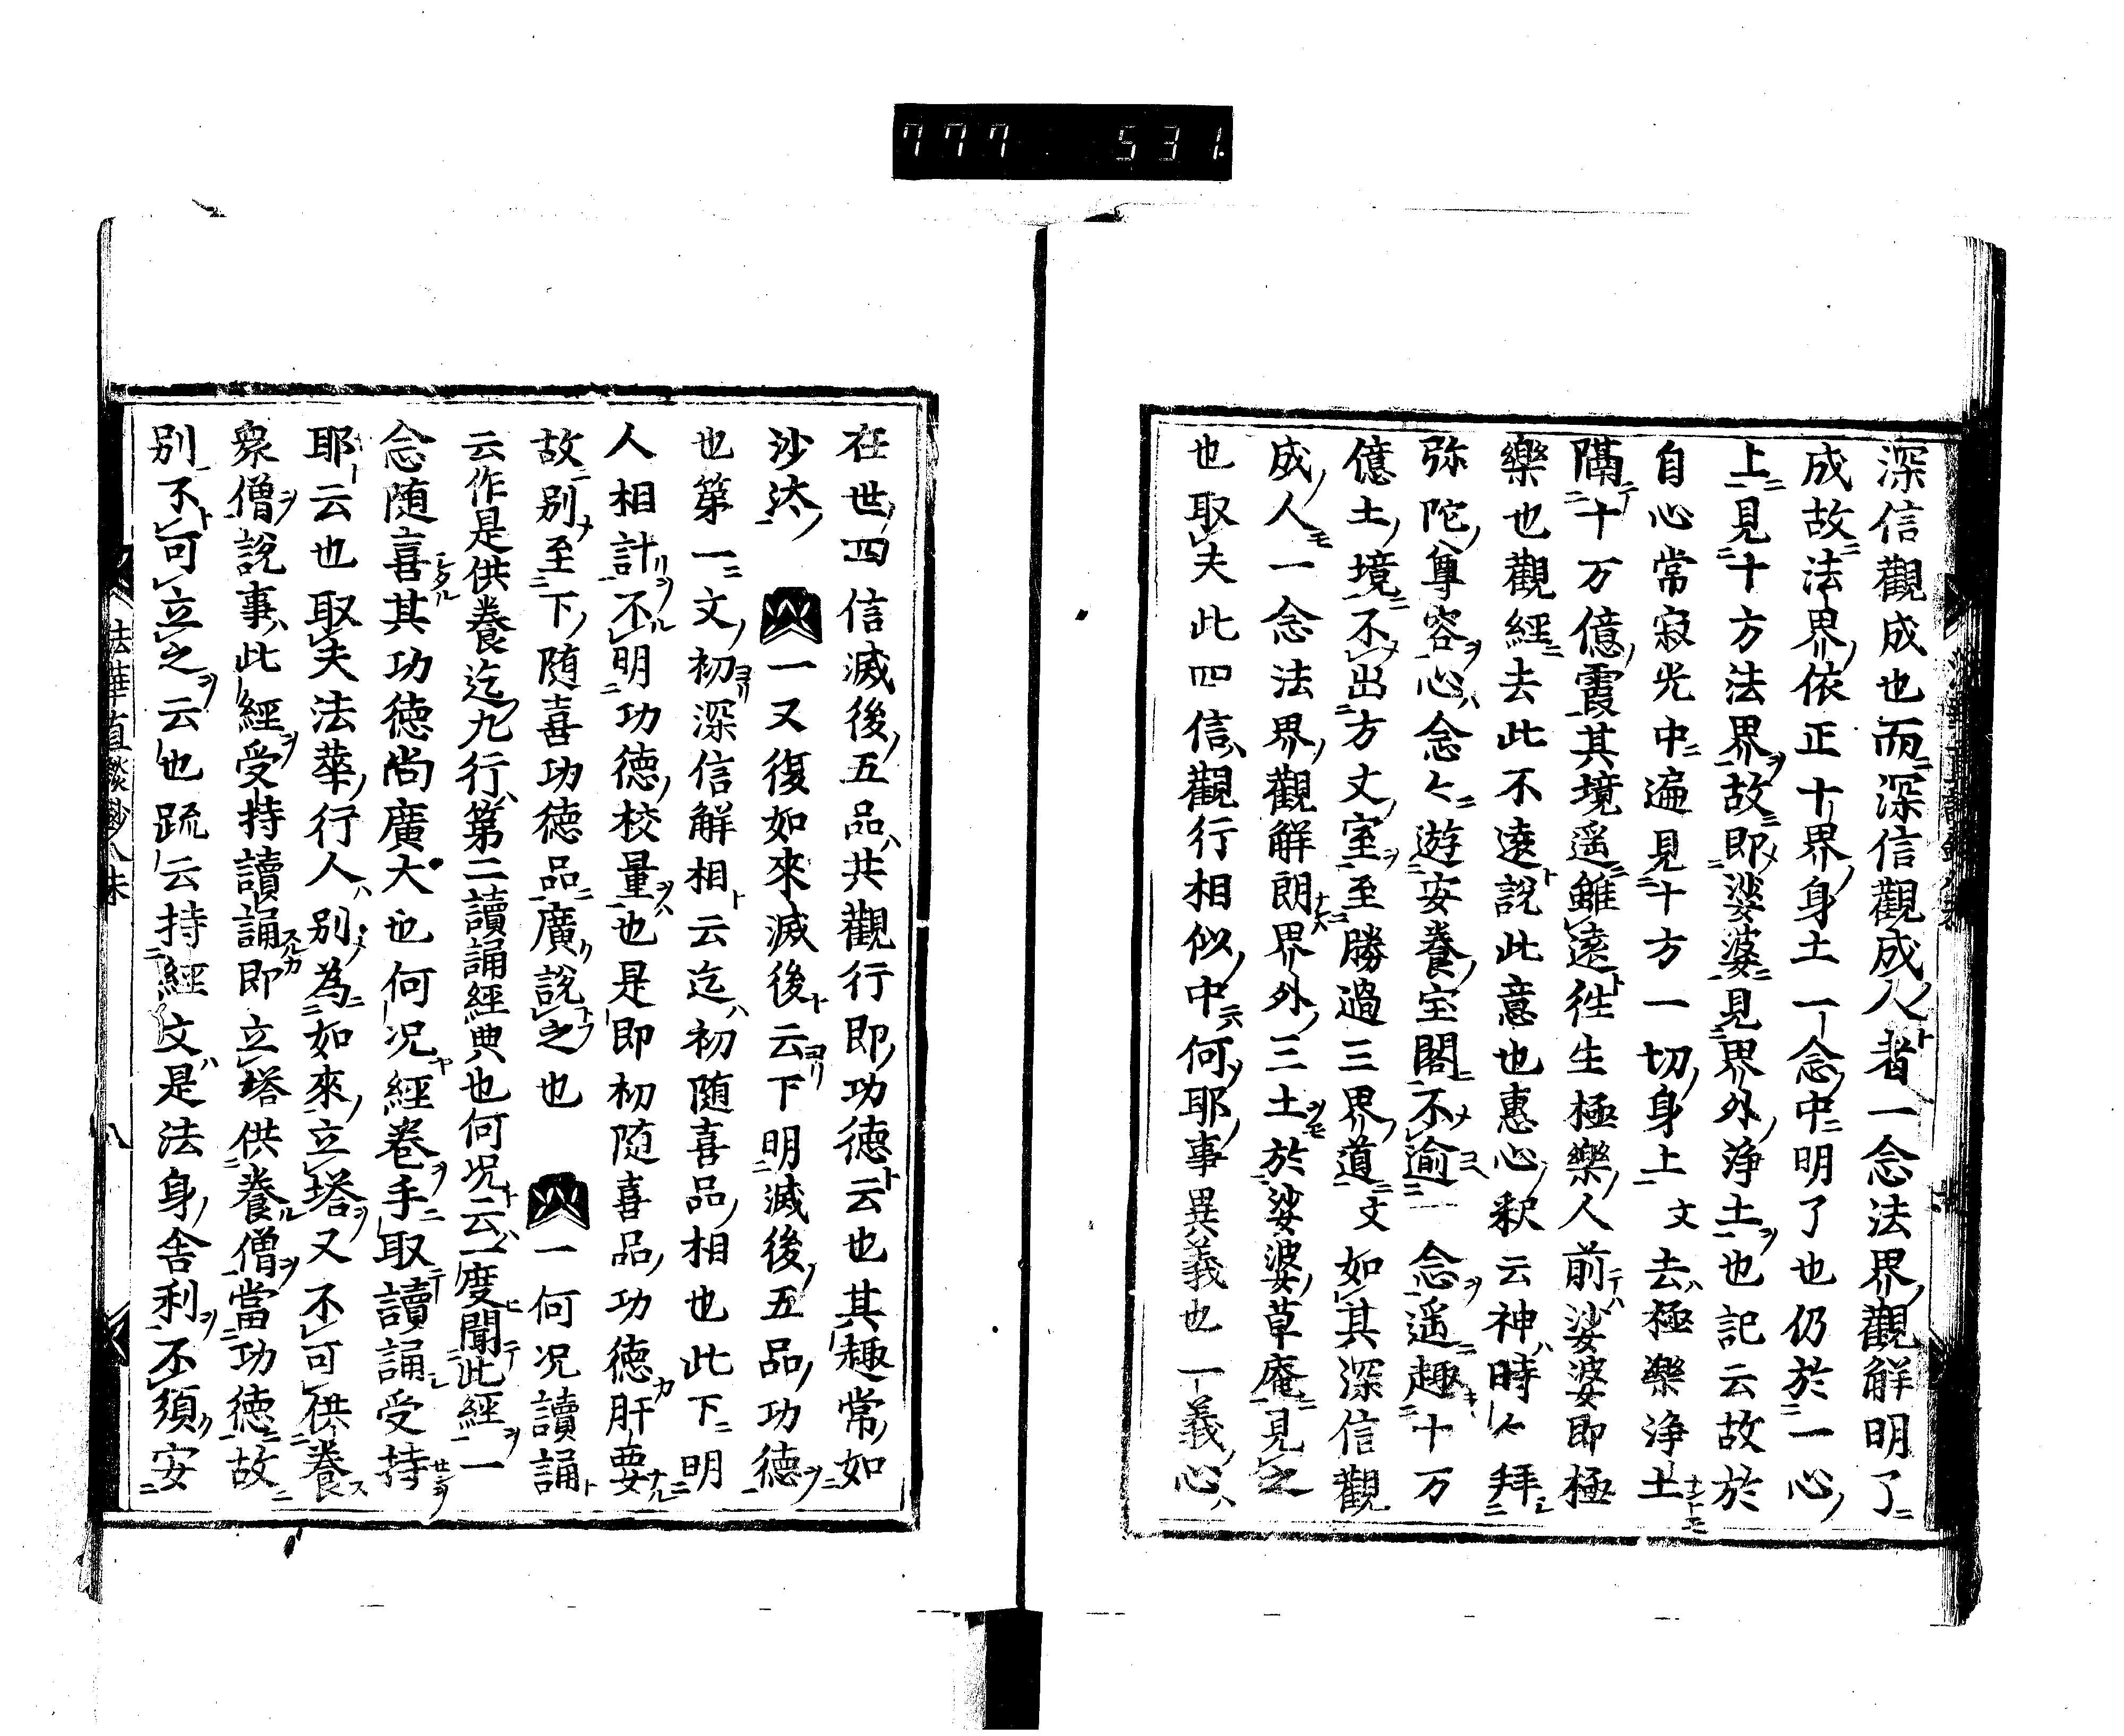 777 531.
深信觀成也而深信觀成人者一念法界觀解明了
成故法界依正十界身土一念中明了也仍於一心
上見十方法界故即娑婆見界外浄土也記云故於
自心常寂光中遍見十方一切身土文去極樂浄土
隔十万億霞其境遥雖遠徃生極樂人前娑婆即極
樂也觀經去此不遠説此意也惠心釈云神時々拜
弥陀尊容心念々遊安養宝閣不逾一念遥趣十万
億土境不出方丈室至勝過三界道文如其深信觀
成人一念法界觀解朗界外三土於娑婆草庵見之
也取夫此四信觀行相似中何耶事異義也一義心
在世四信滅後五品共觀行即功徳云也其趣常如
沙汰 一又復如來滅後云下明滅後五品功徳
也第一文初深信解相云迄初随喜品相也此下明
人相計不明功徳校量也是即初随喜品功徳肝要
故別至下随喜功徳品廣説之也 一何況讀誦
云作是供養迄九行第二讀誦經典也何況云一度聞此經一
念随喜其功徳尚廣大也何況經卷手取讀誦受持
耶云也取夫法華行人別為如來立塔又不可供養
衆僧説事此經受持讀誦即立塔供養僧當功徳故
別不可立之云也疏云持經文是法身舍利不須安
法華直談鈔八末 八